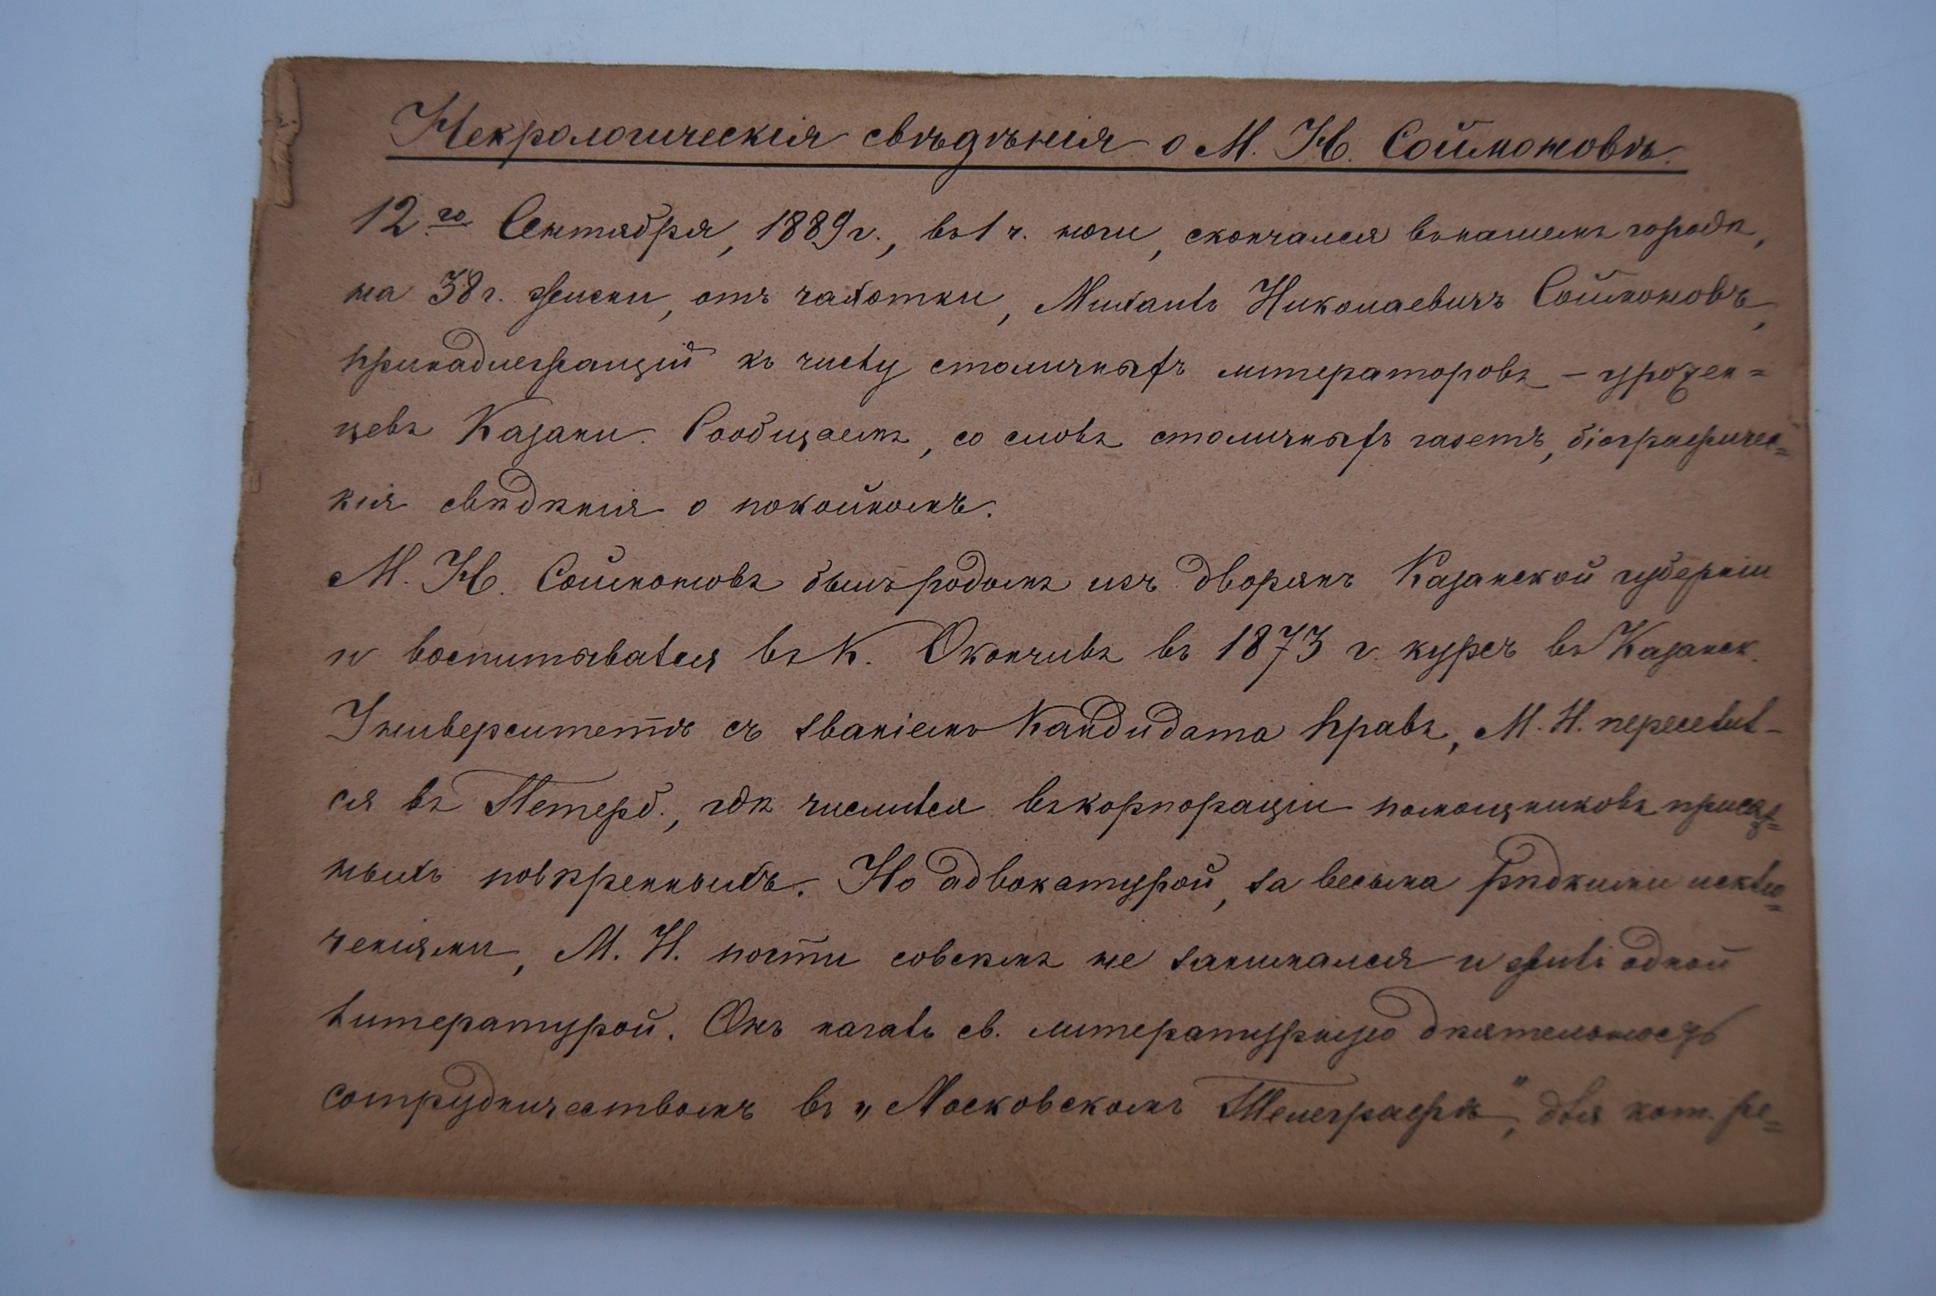 Некрологическія свѣдѣнія о М. Н. Соймоновѣ.
12го Сентября, 1889 г., въ 1 ч. ночи, скончался въ нашемъ городѣ,
на 38 г. жизни, отъ чахотки, Михаилъ Николаевичъ Соймоновъ,
принадлежащій къ числу столичныхъ литераторовъ – урожен=
цевъ Казани. Сообщаемъ, со словъ столичныхъ газетъ, біографичес=
кія свѣдѣнія о покойномъ.
М. Н. Соймоновъ былъ родомъ изъ дворянъ Казанской губерніи
и воспитывался въ К. Окончивъ въ 1873 г. курсъ въ Казанск.
Университетѣ съ званіемъ Кандидата правъ, М. Н. переселил-
ся въ Петерб., гдѣ числился въ корпораціи помощниковъ присяж=
ныхъ повѣренныхъ. Но адвокатурой, за весьма рѣдкими исклю=
ченіями, М. Н. почти совсѣмъ не занимался и жилъ одной
литературой. Онъ началъ св. литературную дѣятельность
сотрудничествомъ въ „Московскомъ Телеграфѣ", для кот. ре=